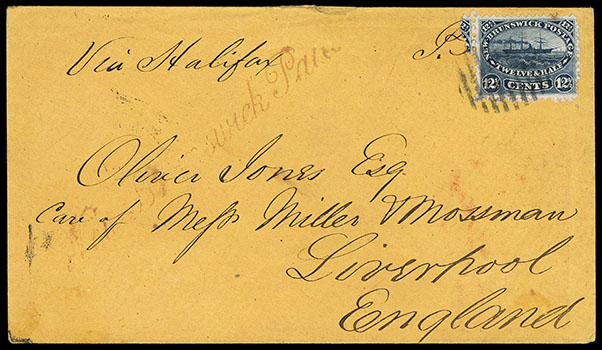 Via Halifax
N. BRUNSWICK POSTAGE
12½ 12½
TWELVE & HALF
12½ CENTS 12½
Brunswick Paid
Oliver Jones Esq
Care of Messs Miller & Mossman
Liverpool
England